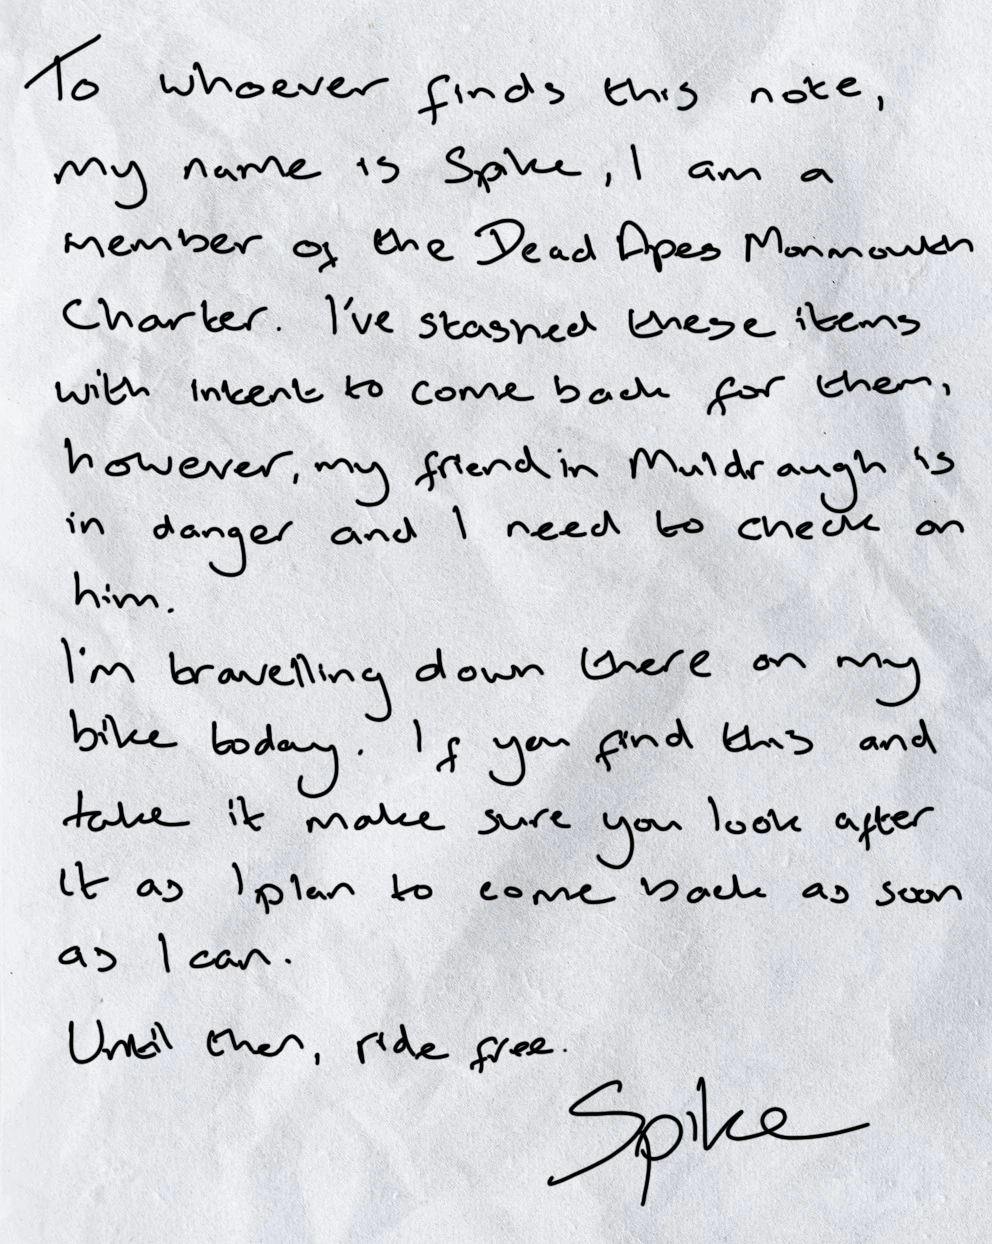 To whoever finds this note,
my name is Spike, I am a
member of the Dead Apes Monmouth
Charter. I've stashed these items
with intent to come back for them,
however, my friend in Muldraugh is
in danger and I need to check on
him.
I'm travelling down there on my
bike today. If you find this and
take it make sure you look after
it as I plan to come back as soon
as I can.
Until then, ride free.
Spike